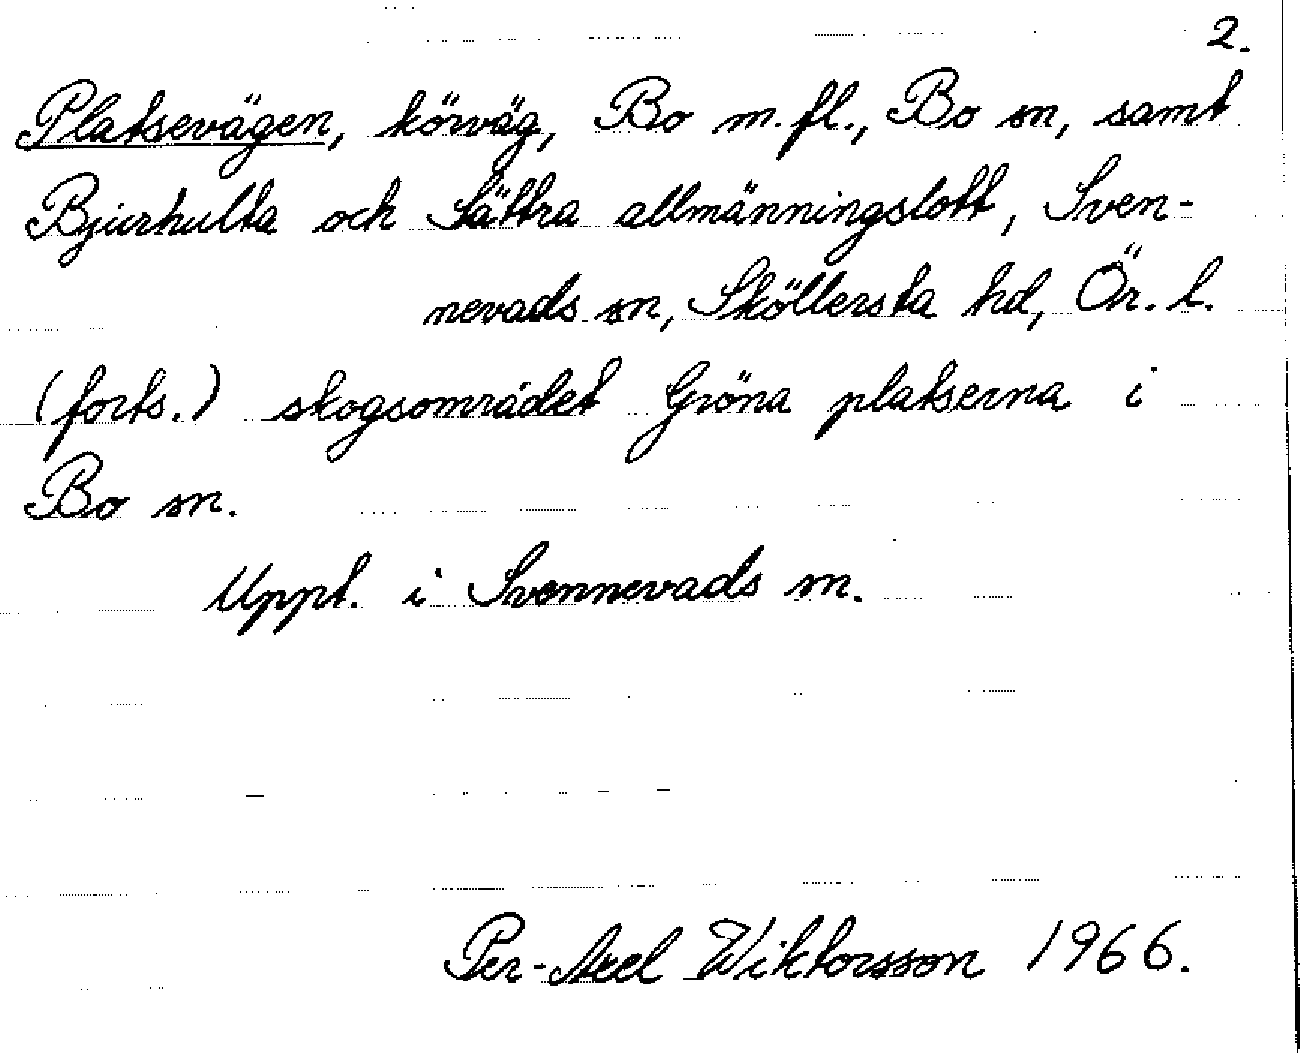 2.
Platsevägen, körväg, Bo m.fl., Bo sn, samt
Bjurhulta och Sättra allmänningslott, Sven-
nevads sn, Sköllersta hd, Ör. l.
(forts.) skogsområdet Gröna platserna i
Bo sn.
Uppt. i Svennevads sn.
Per-Axel Wiktorsson 1966.